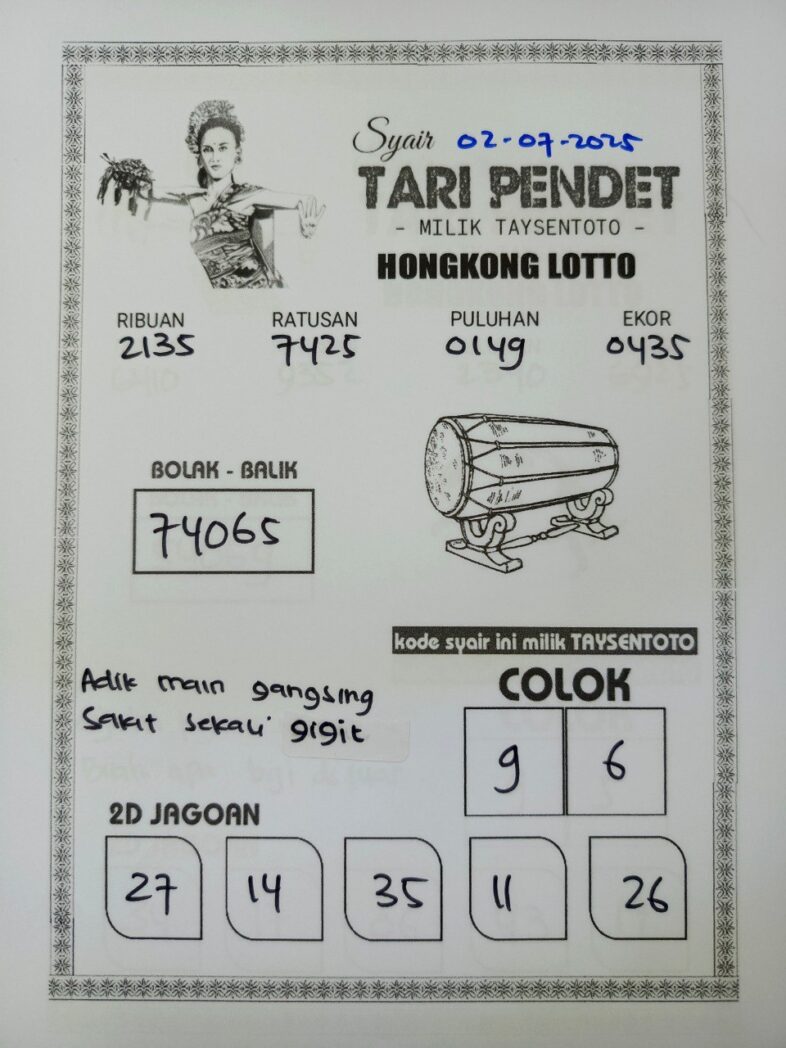 Syair 02-07-2025
TARI PENDET
- MILIK TAYSENTOTO -
HONGKONG LOTTO
RIBUAN RATUSAN PULUHAN EKOR
2135 7425 0149 0435
BOLAK - BALIK
74065
kode syair ini milik TAYSENTOTO
COLOK
9 6
Adik main gangsing
Sakit sekali gigit
2D JAGOAN
27 14 35 11 26